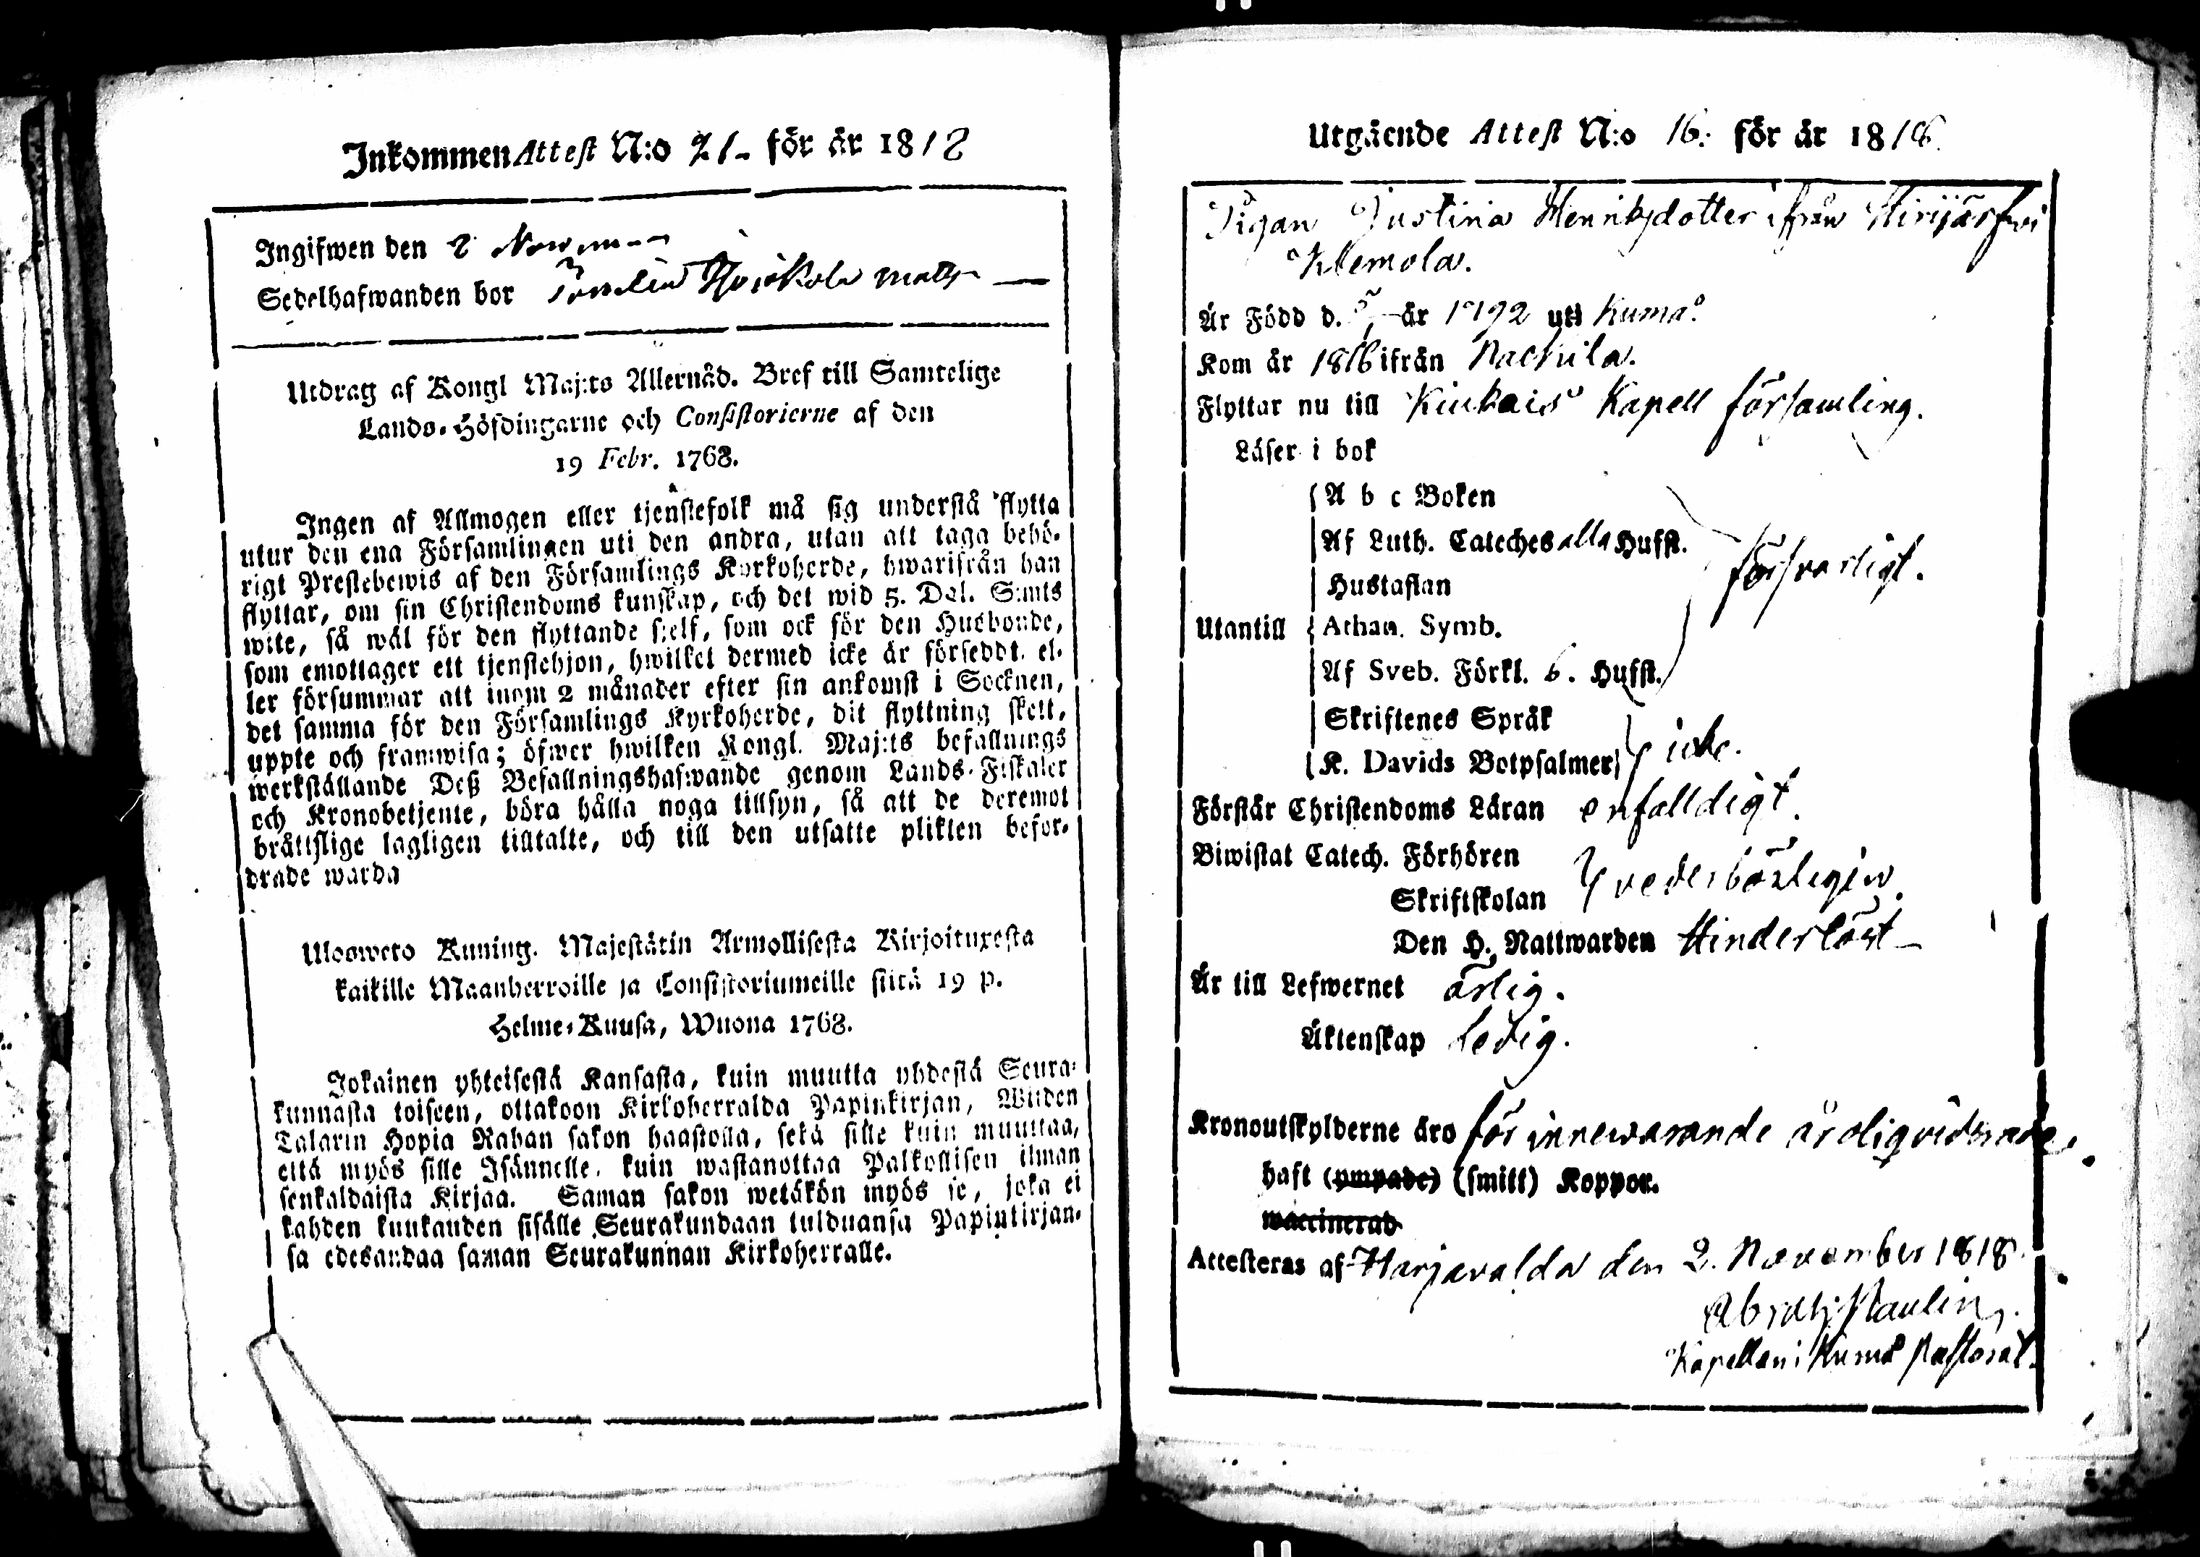 Inkommen Attest N:o 21. för år 1818
Ingifwen den 8 Novem
Sedelhafwanden bor
Utdrag af Kongl Maj:ts Allernåd. Bref till Samtelige
Lands-Höfdingarne och Consistorierne af den
19 Febr. 1768.
Ingen af Allmogen eller tjenstefolk må sig understå flytta
utur den ena Församlingen uti den andra, utan att taga behö-
rigt Prestebewis af den Församlings Kyrkoherde, hwarifrån han
flyttar, om sin Christendoms kunskap, och det wid 5. Dal. S:mts
wite, så wäl för den flyttande sjelf, som ock för den Husbonde,
som emottager ett tjenstehjon, hwilket dermed icke är försedt. el-
ler försummar att inom 2 månader efter sin ankomst i Socknen,
det samma för den Församlings Kyrkoherde, dit flyttning skett,
uppte och framwisa; öfwer hwilken Kongl. Maj:ts befallnings
werkställande Deß Befallningshafwande genom Lands-Fiskaler
och Kronobetjente, böra hålla noga tillsyn, så att de deremot
bråttslige lagligen tilltalte, och till den utsatte plikten befor-
drade warda
Ulosweto Kuning. Majestätin Armollisesta Kirjoituxesta
kaikille Maanherroille ja Consistoriumeille siitä 19 p.
Helme-Kuusa, Wuona 1768.
Jokainen yhteisestä Kansasta, kuin muutta yhdestä Seura-
kunnasta toiseen, ottakoon Kirkoherralda Papinkirjan, Wiiden
Talarin Hopia Rahan sakon haastolla, sekä sille kuin muuttaa,
että myös sille Isännelle, kuin wastanottaa Palkollisen ilman
senkaldaista Kirjaa. Saman sakon wetäkön myös se, joka ei
kahden kuukauden sisälle Seurakundaan tulduansa Papinkirjan-
sa edesandaa saman Seurakunnan Kirkoherralle.
Utgående Attest N:o 16. för år 1818.
Pigan Justina Henriksdotter ifrån Hirijärfvi
Klemola.
Är Född d. 5/ år 1792 uti Kumo.
Kom år 1816 ifrån Nackila.
Flyttar nu till Kiukais Kapell församling.
Läser i bok
A b c Boken
Af Luth. Cateches alla Hufst.
Hustaflan
försvarligt.
Utantill Athan. Symb.
Af Sveb. Förkl. 6. Hufst.
Skriftenes Språk
K. Davids Botpsalmer icke.
Förstår Christendoms Läran enfalldigt.
Biwistat Catech. Förhören
Skriftskolan vederbörligen.
Den H. Nattwarden Hinderlöst
Är till Lefwernet ärlig.
Äktenskap Ledig.
Kronoutskylderne äro för innewarande år
haft (ympade) (smitt) Koppor.
waccinerad
Attesteras af Harjavalda den 2. November 1818.
Abrah: Paulin.
Kapellan i Kumo Pastorat.